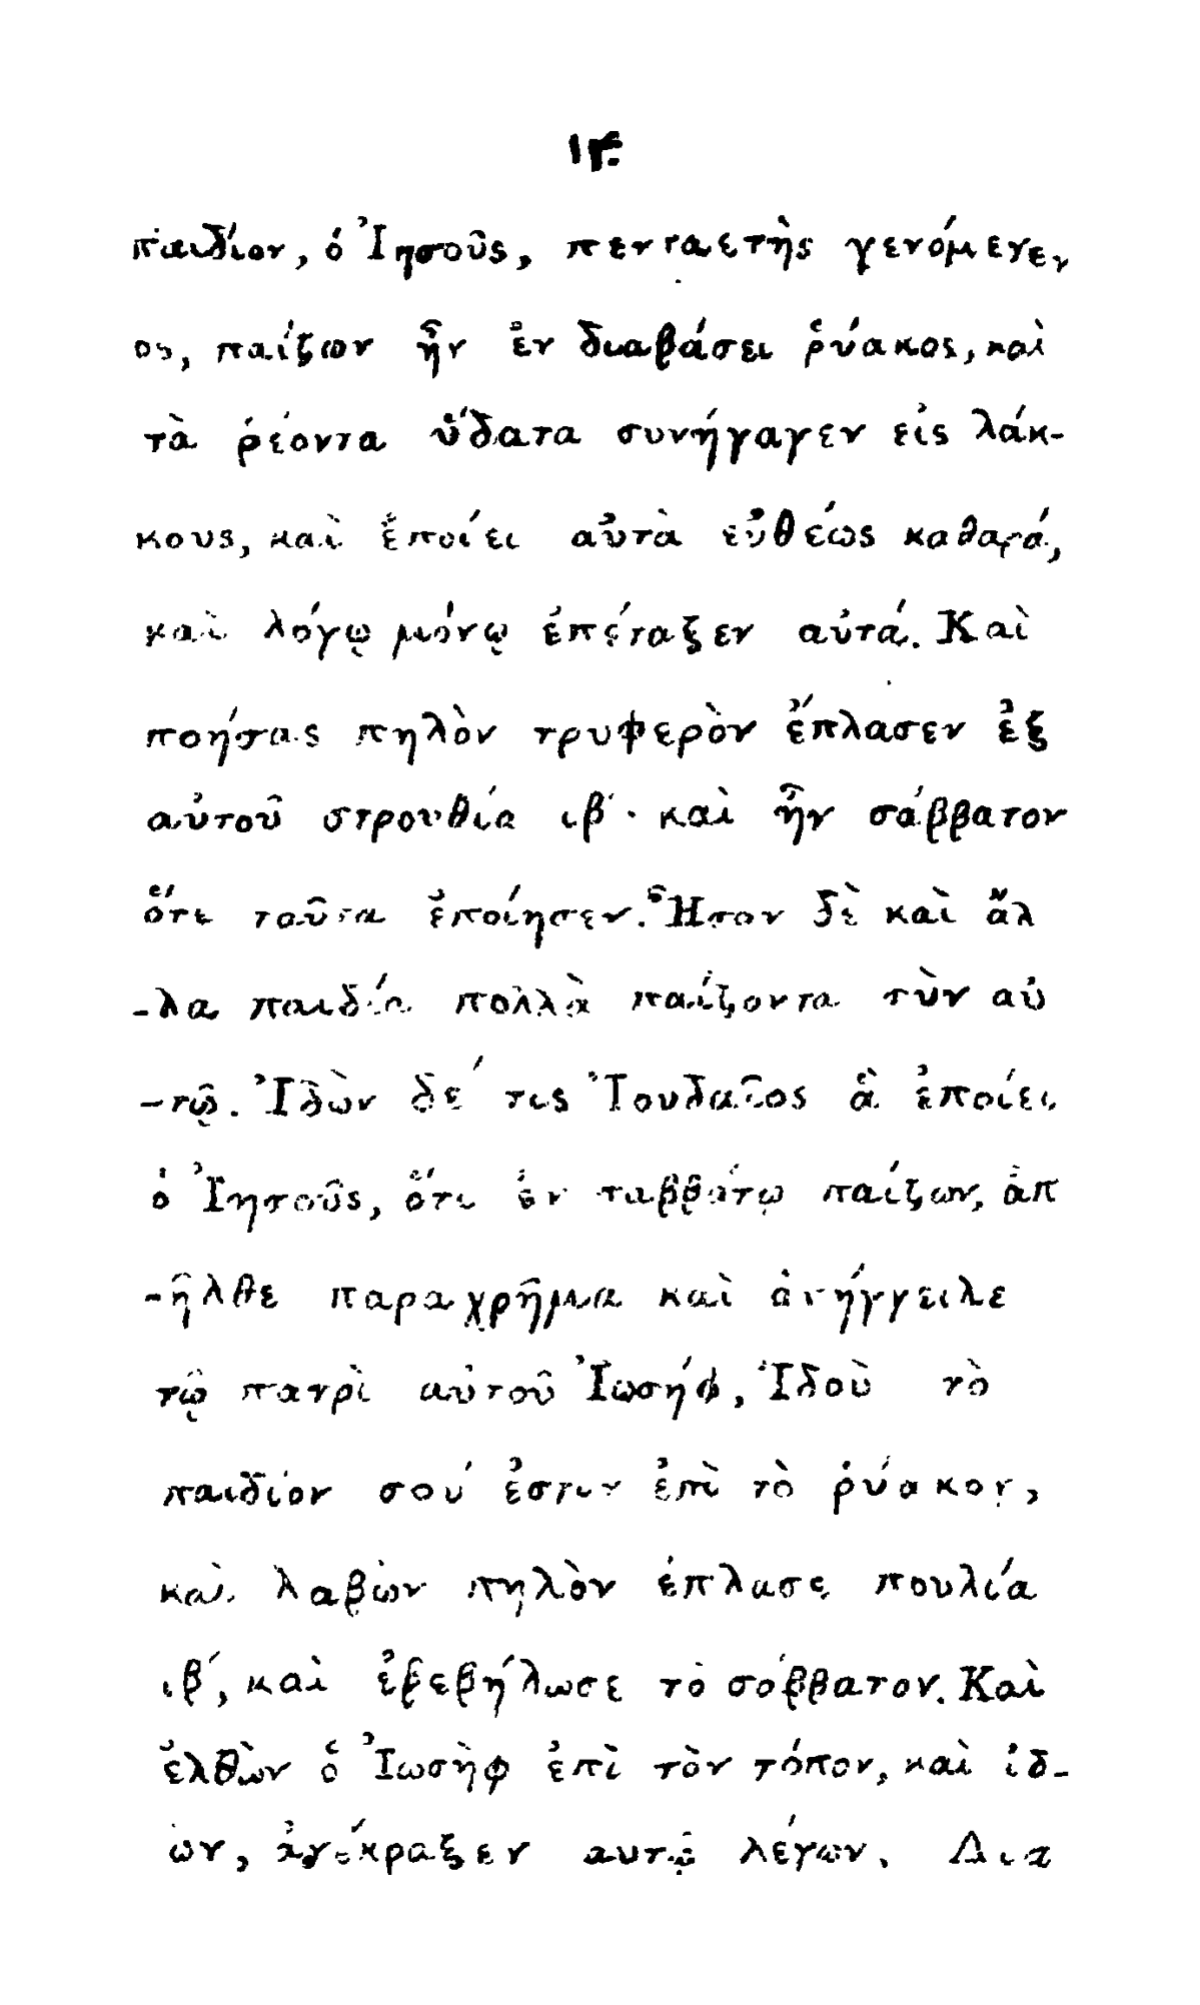 παιδίον, ὁ Ἰησοῦς, πενταετὴς γενόμενεν
ος, παίζων ἦν ἐν διαβάσει ῥύακος, καὶ
τὰ ῥέοντα ὕδατα συνήγαγεν εἰς λάκ-
κους, καὶ ἐποίει αὐτὰ εὐθέως καθαρά,
καὶ λόγῳ μόνῳ ἐπέταξεν αὐτά. Καὶ
ποήσας πηλὸν τρυφερὸν ἔπλασεν ἐξ
αὐτοῦ στρουθία ιβ´· καὶ ἦν σάββατον
ὅτε ταῦτα ἐποίησεν. Ἦσαν δὲ καὶ ἄλ
-λα παιδία πολλὰ παίζοντα σὺν αὐ
-τῷ. Ἰδὼν δέ τις Ἰουδαῖος ἃ ἐποίει
ὁ Ἰησοῦς, ὅτι ἐν σαββάτῳ παίζων, ἀπ
-ῆλθε παραχρῆμα καὶ ἀνήγγειλε
τῷ πατρὶ αὐτοῦ Ἰωσήφ, Ἰδοὺ τὸ
παιδίον σού ἐστιν ἐπὶ τὸ ῥύακον,
καὶ λαβὼν πηλὸν ἔπλασε πουλία
ιβ´, καὶ ἐβεβήλωσε τὸ σάββατον. Καὶ
ἐλθὼν ὁ Ἰωσὴφ ἐπὶ τὸν τόπον, καὶ ἰδ-
ὼν, ἀνέκραξεν αυτῷ λέγων. Δια